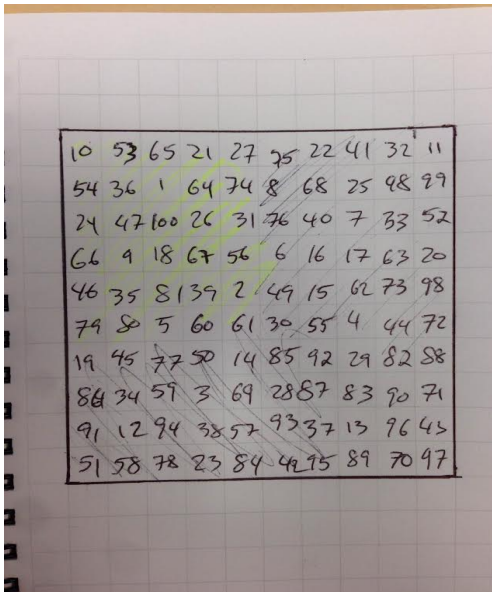 10 53 65 21 27 75 22 41 32 11
54 36 1 64 74 8 68 25 98 99
24 47 100 26 31 76 40 7 33 52
66 9 18 67 56 6 16 17 63 20
46 35 81 39 2 49 15 62 73 98
79 80 5 60 61 30 55 4 44 72
19 45 77 50 14 85 92 29 82 88
86 34 59 3 69 28 87 83 90 71
91 12 94 38 57 93 37 13 96 43
51 58 78 23 84 42 95 89 70 97